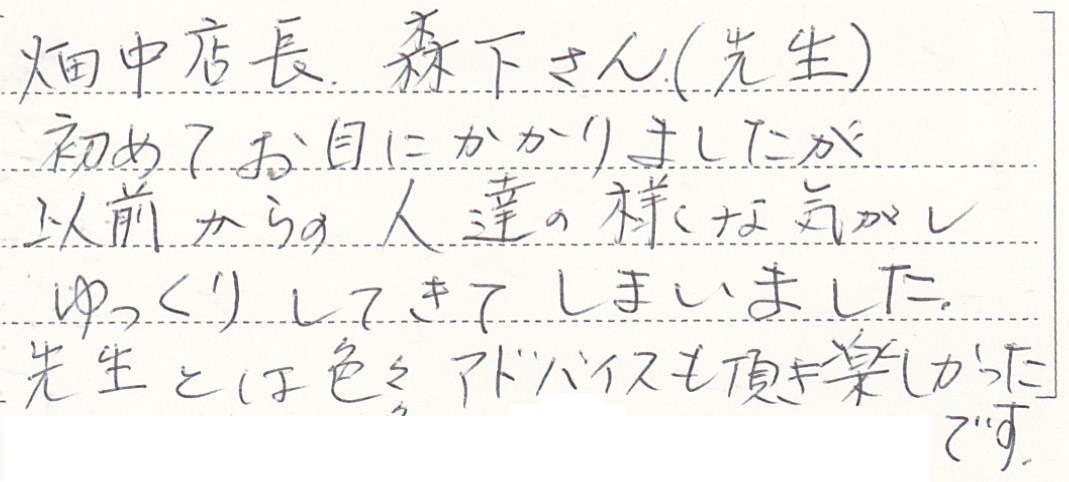 畑中店長.森下さん.(先生)
初めてお目にかかりましたが
以前からの人達の様な気がし
ゆっくりしてきてしまいました.
先生とは色々アドバイスも頂き楽しかった
です.